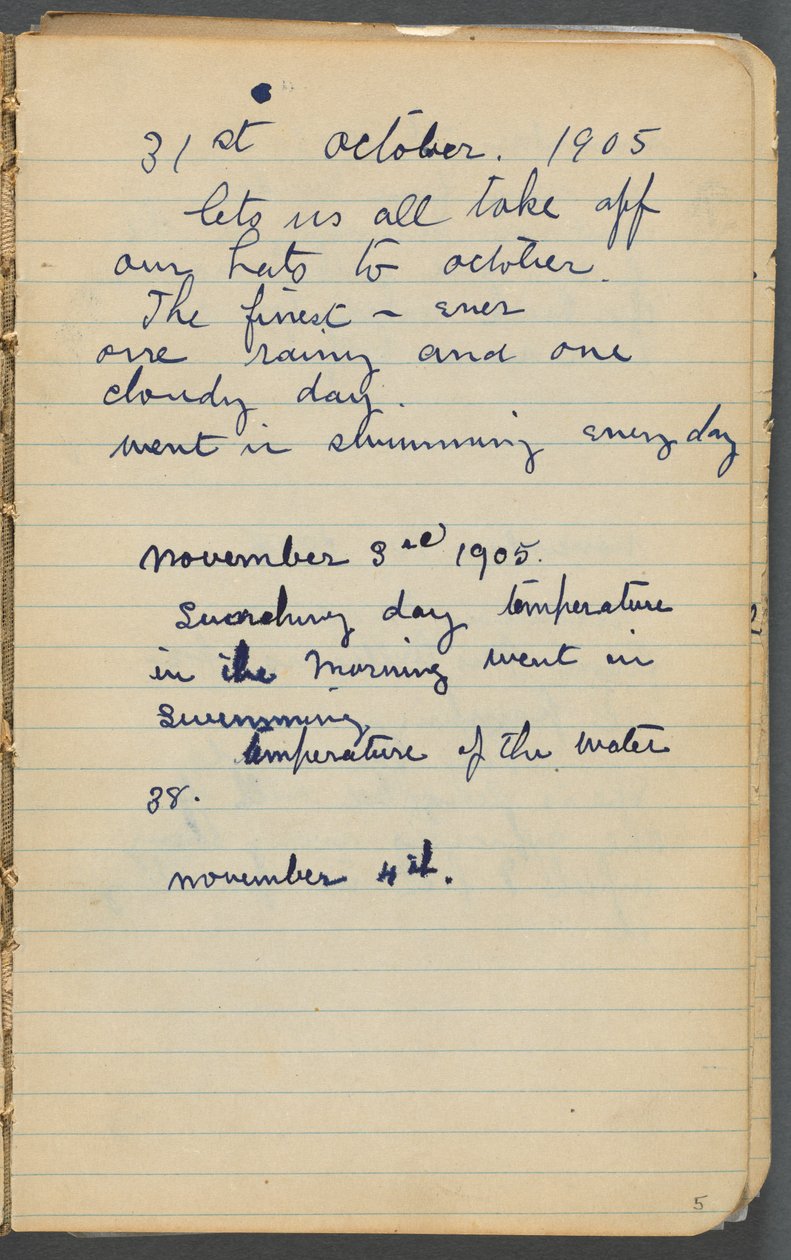 31st october. 1905
lets us all take off
our hats to october.
The finest - ever
one rainy and one
cloudy day.
went in swimming every day
november 3rd 1905.
day temperature
in the morning went in
swimming
temperature of the water
38.
november 4th.
5